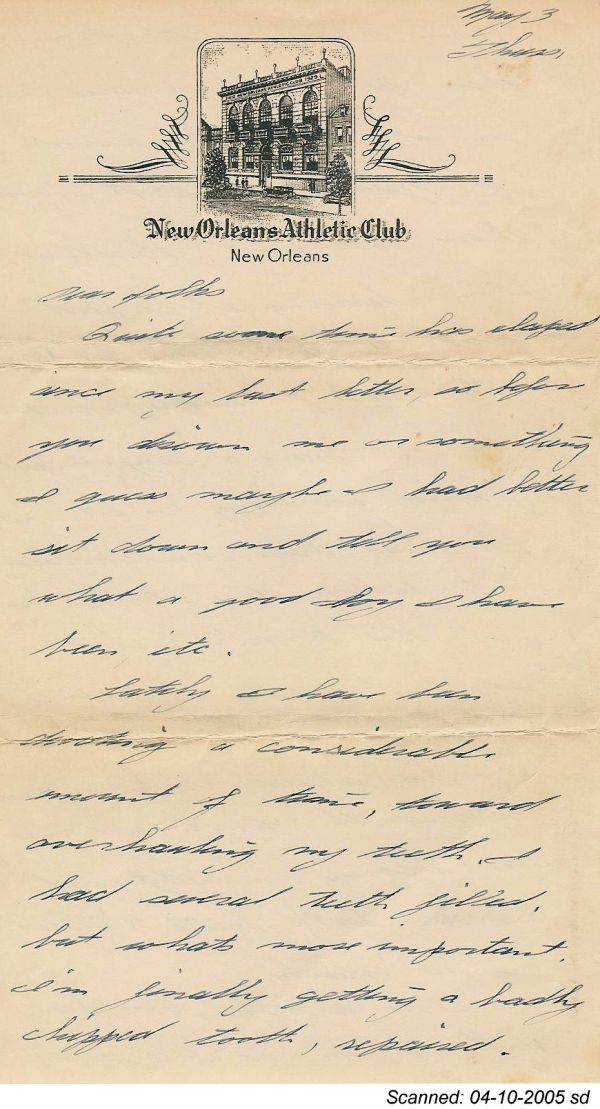 May 3
Thurs.
NEW ORLEANS ATHLETIC CLUB 1929
New Orleans Athletic Club
New Orleans
Dear folks
Quite some time has elapsed
since my last letter, so before
you disown me or something
I guess maybe I had better
sit down and tell you
what a good boy I have
been, etc.
Lately I have been
devoting a considerable
amount of time, toward
overhauling my teeth. I
had several teeth filled,
but whats more important,
I'm finally getting a badly
chipped tooth, repaired.
Scanned: 04-10-2005 sd